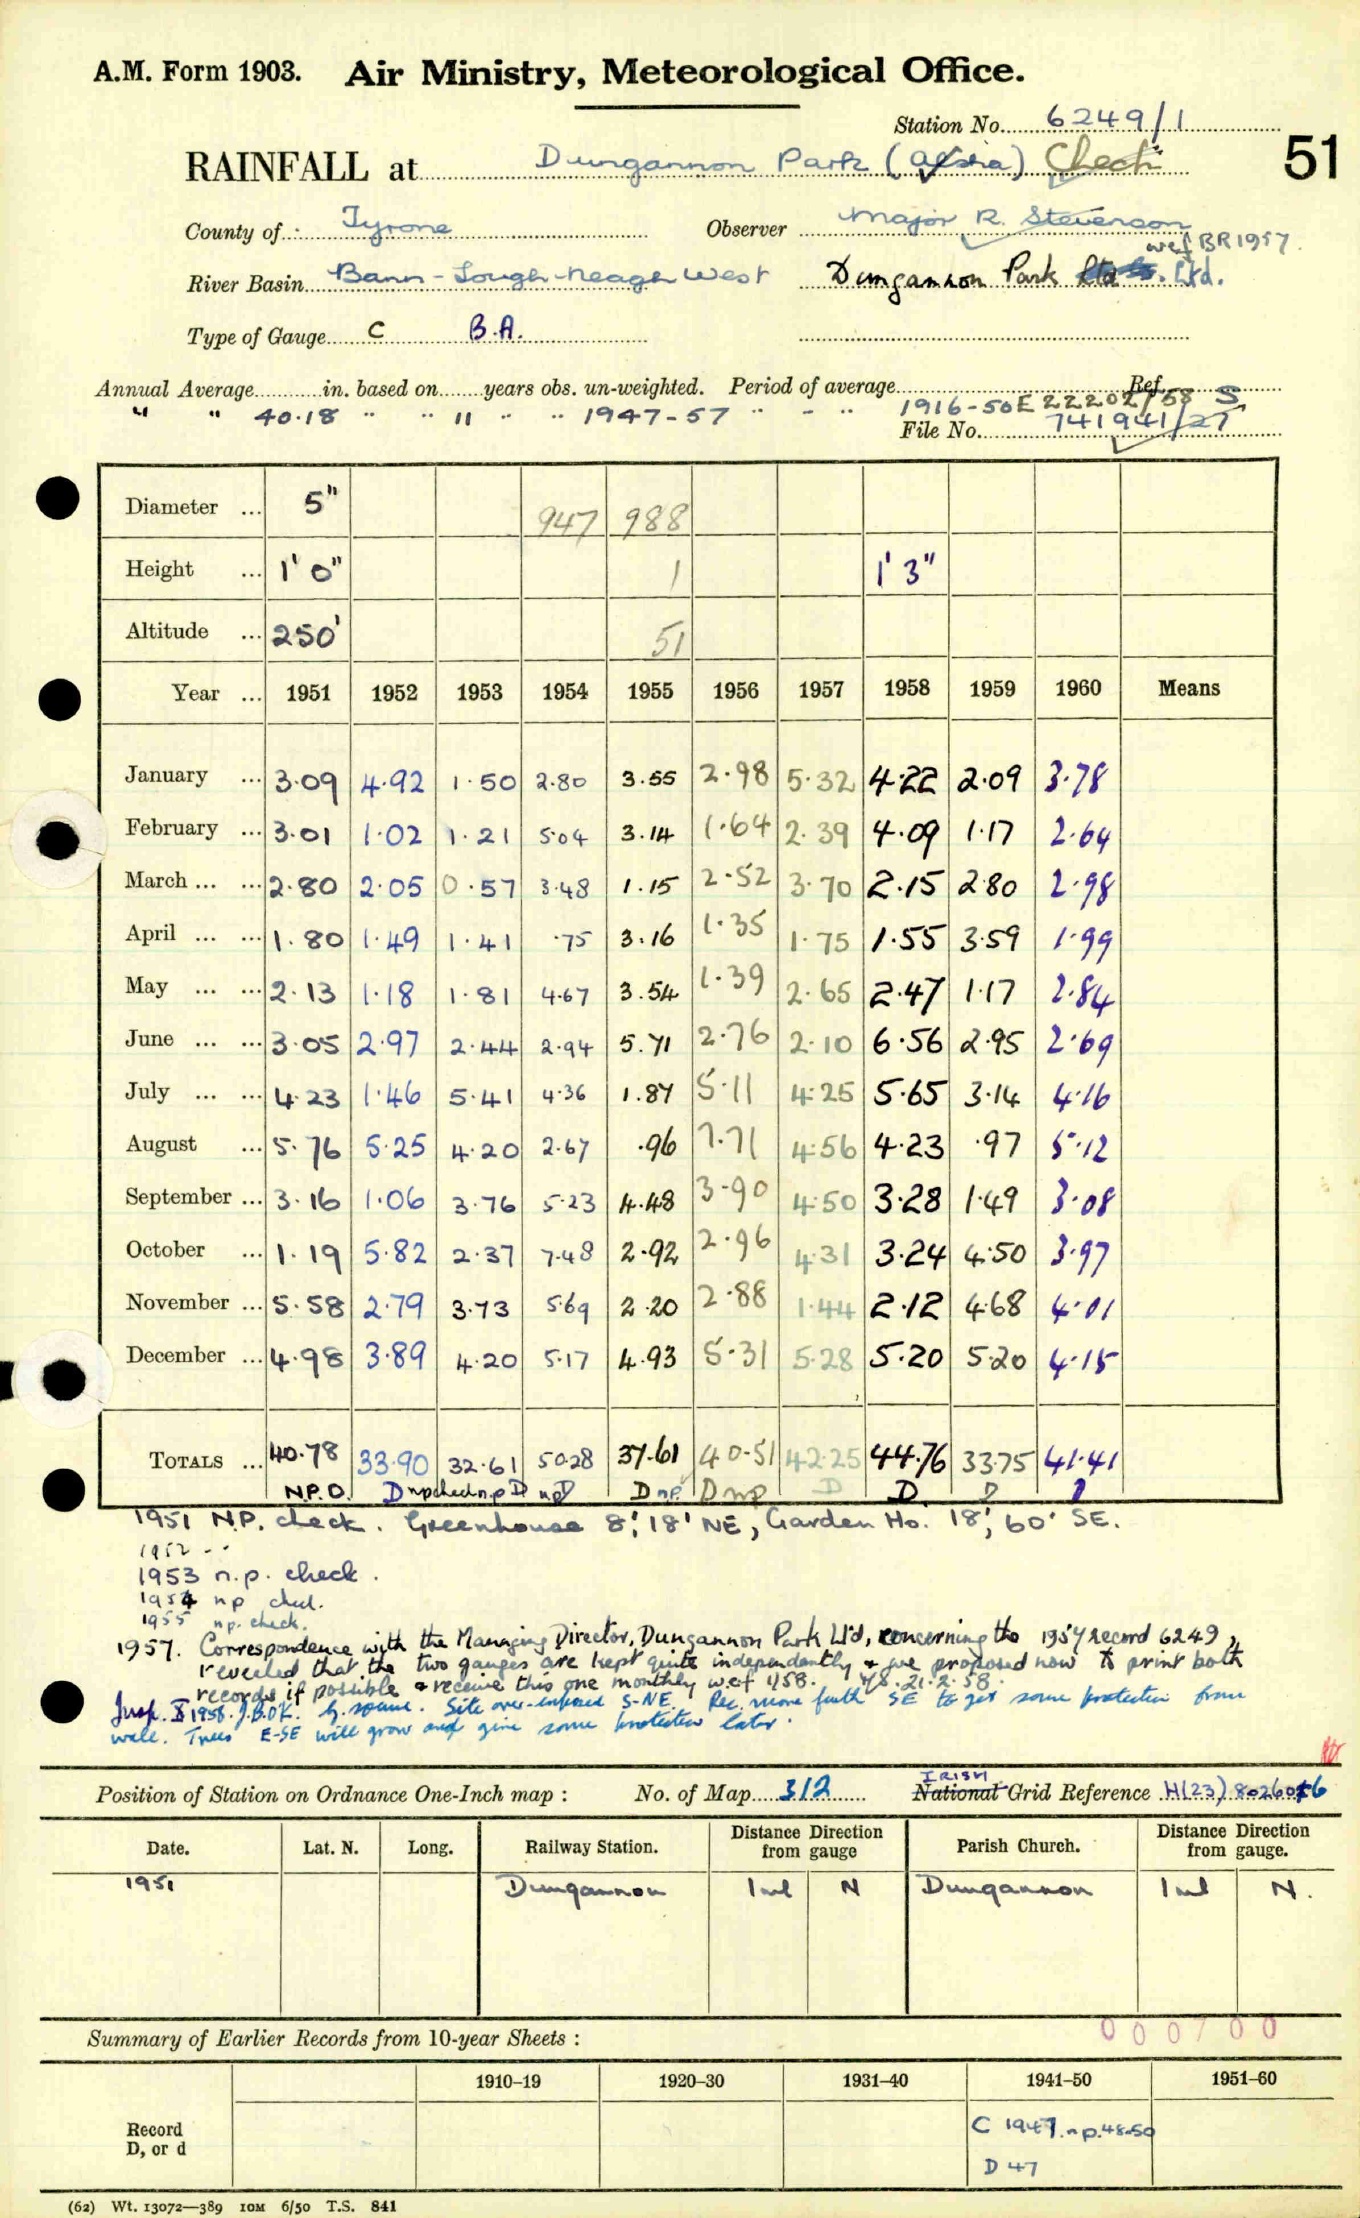 A.M. Form 1903. Air Ministry, Meteorological Office.
Station No. 6249/1
RAINFALL at Dungannon Park ( ) Check
51
County of Tyrone Observer Major R. Stevenson
wef BR 1957
River Basin Bann - Lough Neagh West Dungannon Park Ltd.
Type of Gauge C B.A.
Annual Average in. based on years obs. un-weighted. Period of average Ref.
" " 40.18 " " 11 " " 1947-57 " - " 1916-50 E22202/58 S
File No. 741941/27
Diameter ... 5" 947 988
Height ... 1' 0" 1 1' 3"
Altitude ... 250' 51
Year ... 1951 1952 1953 1954 1955 1956 1957 1958 1959 1960 Means
January ... 3.09 4.92 1.50 2.80 3.55 2.98 5.32 4.22 2.09 3.78
February ... 3.01 1.02 1.21 5.04 3.14 1.64 2.39 4.09 1.17 2.64
March ... ... 2.80 2.05 0.57 3.48 1.15 2.52 3.70 2.15 2.80 2.98
April ... ... 1.80 1.49 1.41 .75 3.16 1.35 1.75 1.55 3.59 1.99
May ... ... 2.13 1.18 1.81 4.67 3.54 1.39 2.65 2.47 1.17 2.84
June ... ... 3.05 2.97 2.44 2.94 5.71 2.76 2.10 6.56 2.95 2.69
July ... ... 4.23 1.46 5.41 4.36 1.87 5.11 4.25 5.65 3.14 4.16
August ... 5.76 5.25 4.20 2.67 .96 7.71 4.56 4.23 .97 5.12
September ... 3.16 1.06 3.76 5.23 4.48 3.90 4.50 3.28 1.49 3.08
October ... 1.19 5.82 2.37 7.48 2.92 2.96 4.31 3.24 4.50 3.97
November ... 5.58 2.79 3.73 5.69 2.20 2.88 1.44 2.12 4.68 4.01
December ... 4.98 3.89 4.20 5.17 4.93 5.31 5.28 5.20 5.20 4.15
TOTALS ... 40.78 33.90 32.61 50.28 37.61 40.51 42.25 44.76 33.75 41.41
N.P.D. D np check n.p D np D D np. D np D D D D
1951 N.P. check. Greenhouse 8', 18' NE, Garden Ho. 18', 60' SE.
1952 - -
1953 n.p. check.
1954 np chel.
1955 n.p. check.
1957. Correspondence with the Managing Director, Dungannon Park Ltd, concerning the 1957 record 6249,
revealed that the two gauges are kept quite independently & we proposed now to print both
records if possible & receive this one monthly w.e.f 1/58. 21.2.58.
Insp. X 1958. J.B.OK. G. Site over-exposed S-NE. Rec. move further SE to get some protection from
wall. Trees E-SE will grow and give some protection later.
Position of Station on Ordnance One-Inch map : No. of Map 312 IRISH National Grid Reference H(23) 802606
Date. Lat. N. Long. Railway Station. Distance from gauge Direction Parish Church. Distance from gauge. Direction
1951 Dungannon 1 ml N Dungannon 1 ml N.
Summary of Earlier Records from 10-year Sheets : 000700
1910–19 1920–30 1931–40 1941–50 1951–60
Record D, or d
C 1947. n.p. 48-50
D 47
(62) Wt. 13072—389 10M 6/50 T.S. 841